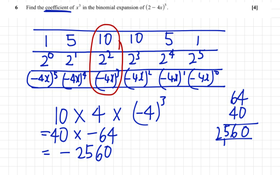 6 Find the coefficient of x³ in the binomial expansion of (2 − 4x)⁵. (4)
1 5 10 10 5 1
2⁰ 2¹ 2² 2³ 2⁴ 2⁵
(-4x)⁵ (-4x)⁴ (-4x)³ (-4x)² (-4x)¹ (-4x)⁰
10 × 4 × (-4)³
= 40 × -64
= -2560
64
40
2560
1